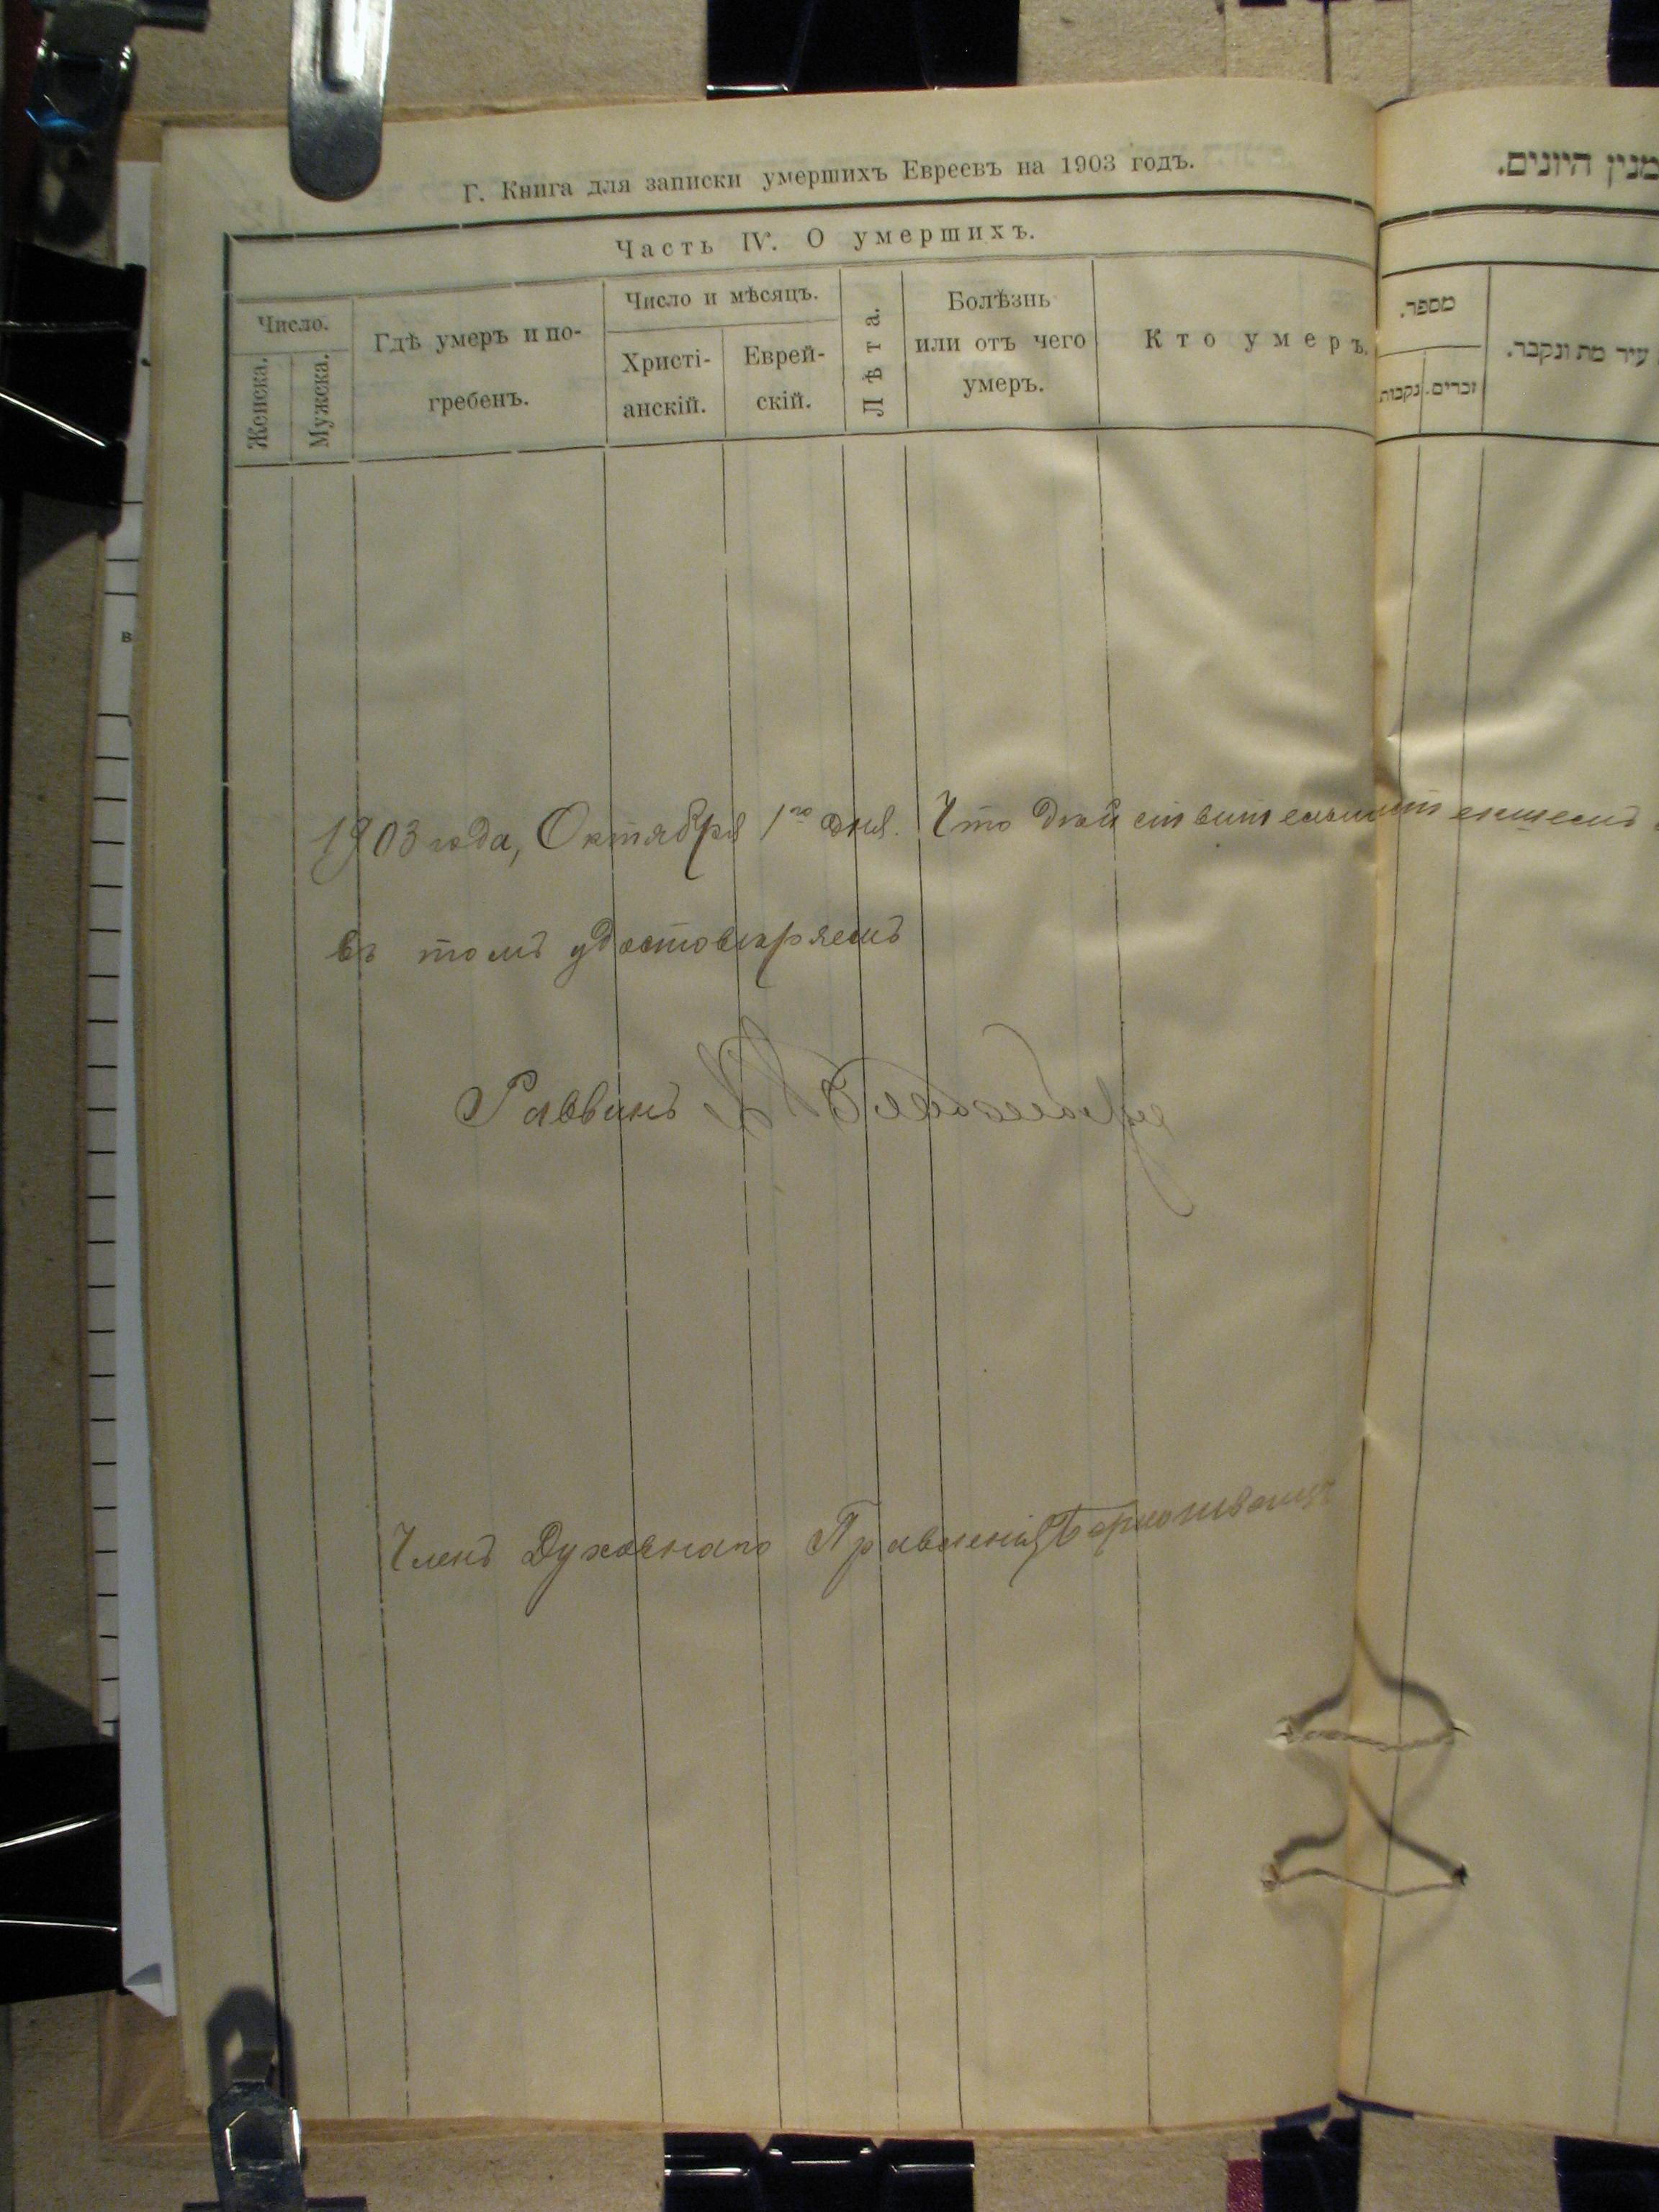 Г. Книга для записки умершихъ Евреевъ на 1903 годъ.
Часть IV. О умершихъ.
Число.
Женска.
Мужска.
Гдѣ умеръ и по-
гребенъ.
Число и мѣсяцъ.
Христі-
анскій.
Еврей-
скій.
Лѣта.
Болѣзнь
или отъ чего
умеръ.
Кто умеръ.
מנין היונים.
מספר.
נקבות.
זכרים.
עיר מת ונקבר.
1903 года, Октября 1го дня. Что дѣйствительно
въ томъ удостовѣряемъ
Раввинъ
Членъ Духовнаго Правленія
в